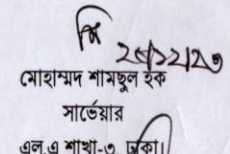 মোহাম্মদ শামছুল হক
সার্ভেয়ার
এল,এ শাখা-৩, ঢাকা।